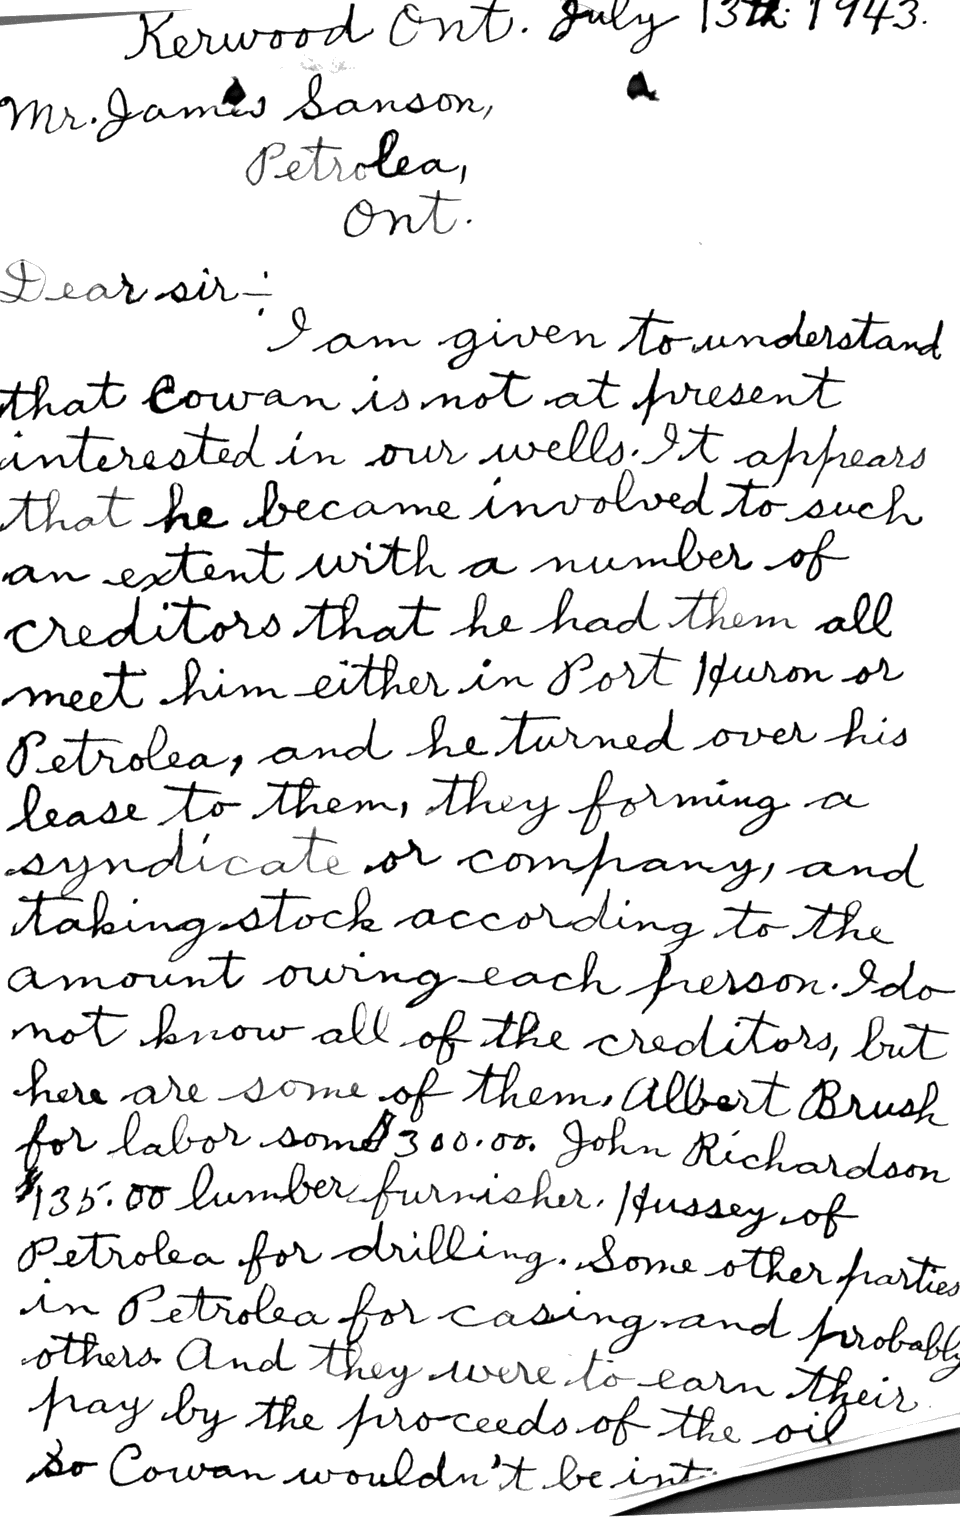 Kerwood Ont. July 13th 1943.
Mr. James Sanson,
Petrolea,
Ont.
Dear sir:-
I am given to understand
that Cowan is not at present
interested in our wells. It appears
that he became involved to such
an extent with a number of
creditors that he had them all
meet him either in Port Huron or
Petrolea, and he turned over his
lease to them, they forming a
syndicate or company, and
taking stock according to the
amount owing each person. I do
not know all of the creditors, but
here are some of them. Albert Brush
for labor some $300.00. John Richardson
$135.00 lumber furnisher. Hussey of
Petrolea for drilling. Some other parties
in Petrolea for casing and probably
others. And they were to earn their
pay by the proceeds of the oil
so Cowan wouldn't be